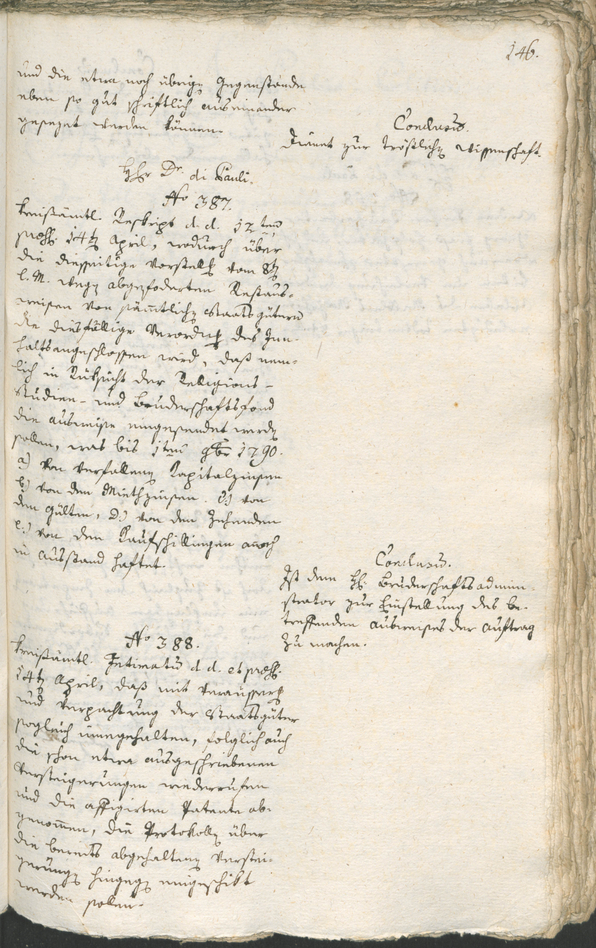 146.
und die etwa noch übrige Gegenstände
eben so gut schriftlich auseinander
gesezet werden können.
Conclusum.
Dienet zur tröstlichen Wissenschaft.
Hr Dr. di Pauli.
No 387.
Kreisämtl. Reskript d. d. 12ten
praes. 14ten April, wodurch über
die diesseitige Vorstellg vom 8ten
l. M. wegen abgefoderten Restaus-
weisen von sämmtlichen Staatsgütern
die diesfällige Verordng des Inn-
halts angeschlossen wird, daß nem-
lich in Rüksicht der Religions-
Studien- und Bruderschaftsfond
die Ausweise eingesendet werden
sollen, was bis 1ten 9br 1790.
a) von verfallenen Kapitalzinsen
b) von den Miethzinsen. c.) von
den Gülten, d.) von den Zehenden
e.) von den Kaufschillingen annoch
in Ausstand haftet.
Conclusum.
Ist dem H. Bruderschaftsadmin-
istrator zur Einstellung des be-
treffenden Ausweises der Auftrag
zu machen.
No 388.
Kreisämtl. Intimatum d. d. et praes.
14ten April, daß mit Veräusserg
und Verpachtung der Staatsgüter
sogleich innegehalten, folglich auch
die schon etwa ausgeschriebenen
Versteigerungen wiederrufen
und die affigirten Patente ab-
genommen, die Protokolle über
die bereits abgehaltene Verstei-
gerungen hingegen eingeschikt
werden sollen.